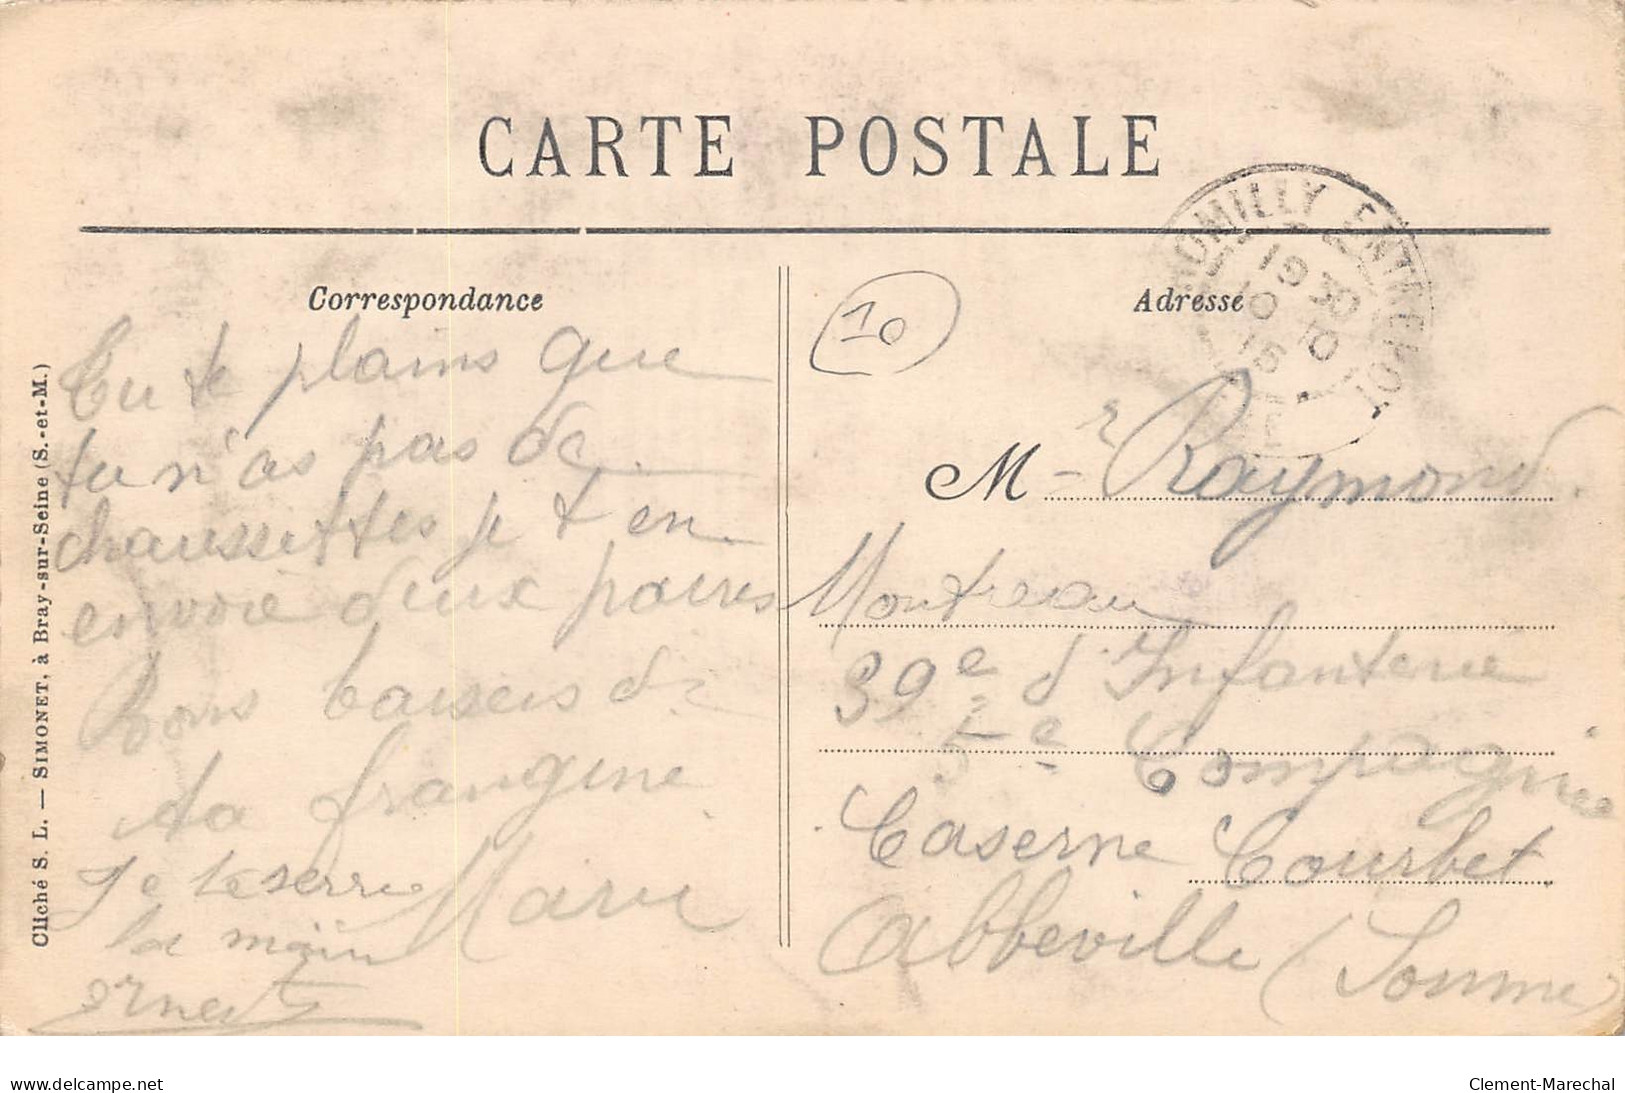 CARTE POSTALE
Correspondance
Adresse
ROMILLY ENTREPOT
10
Tu te plains que
tu n'as pas de
chaussettes je t en
envoie deux paires
Bons baisers de
ta frangine
Marie
Je te serre
la main
Ernest
Mr Raymond
Montreau
39e d'Infanterie
5e Compagnie
Caserne Courbet
Abbeville (Somme)
Cliché S. L. — SIMONET, à Bray-sur-Seine (S.-et-M.)
delcampe.net
Clement-Marechal